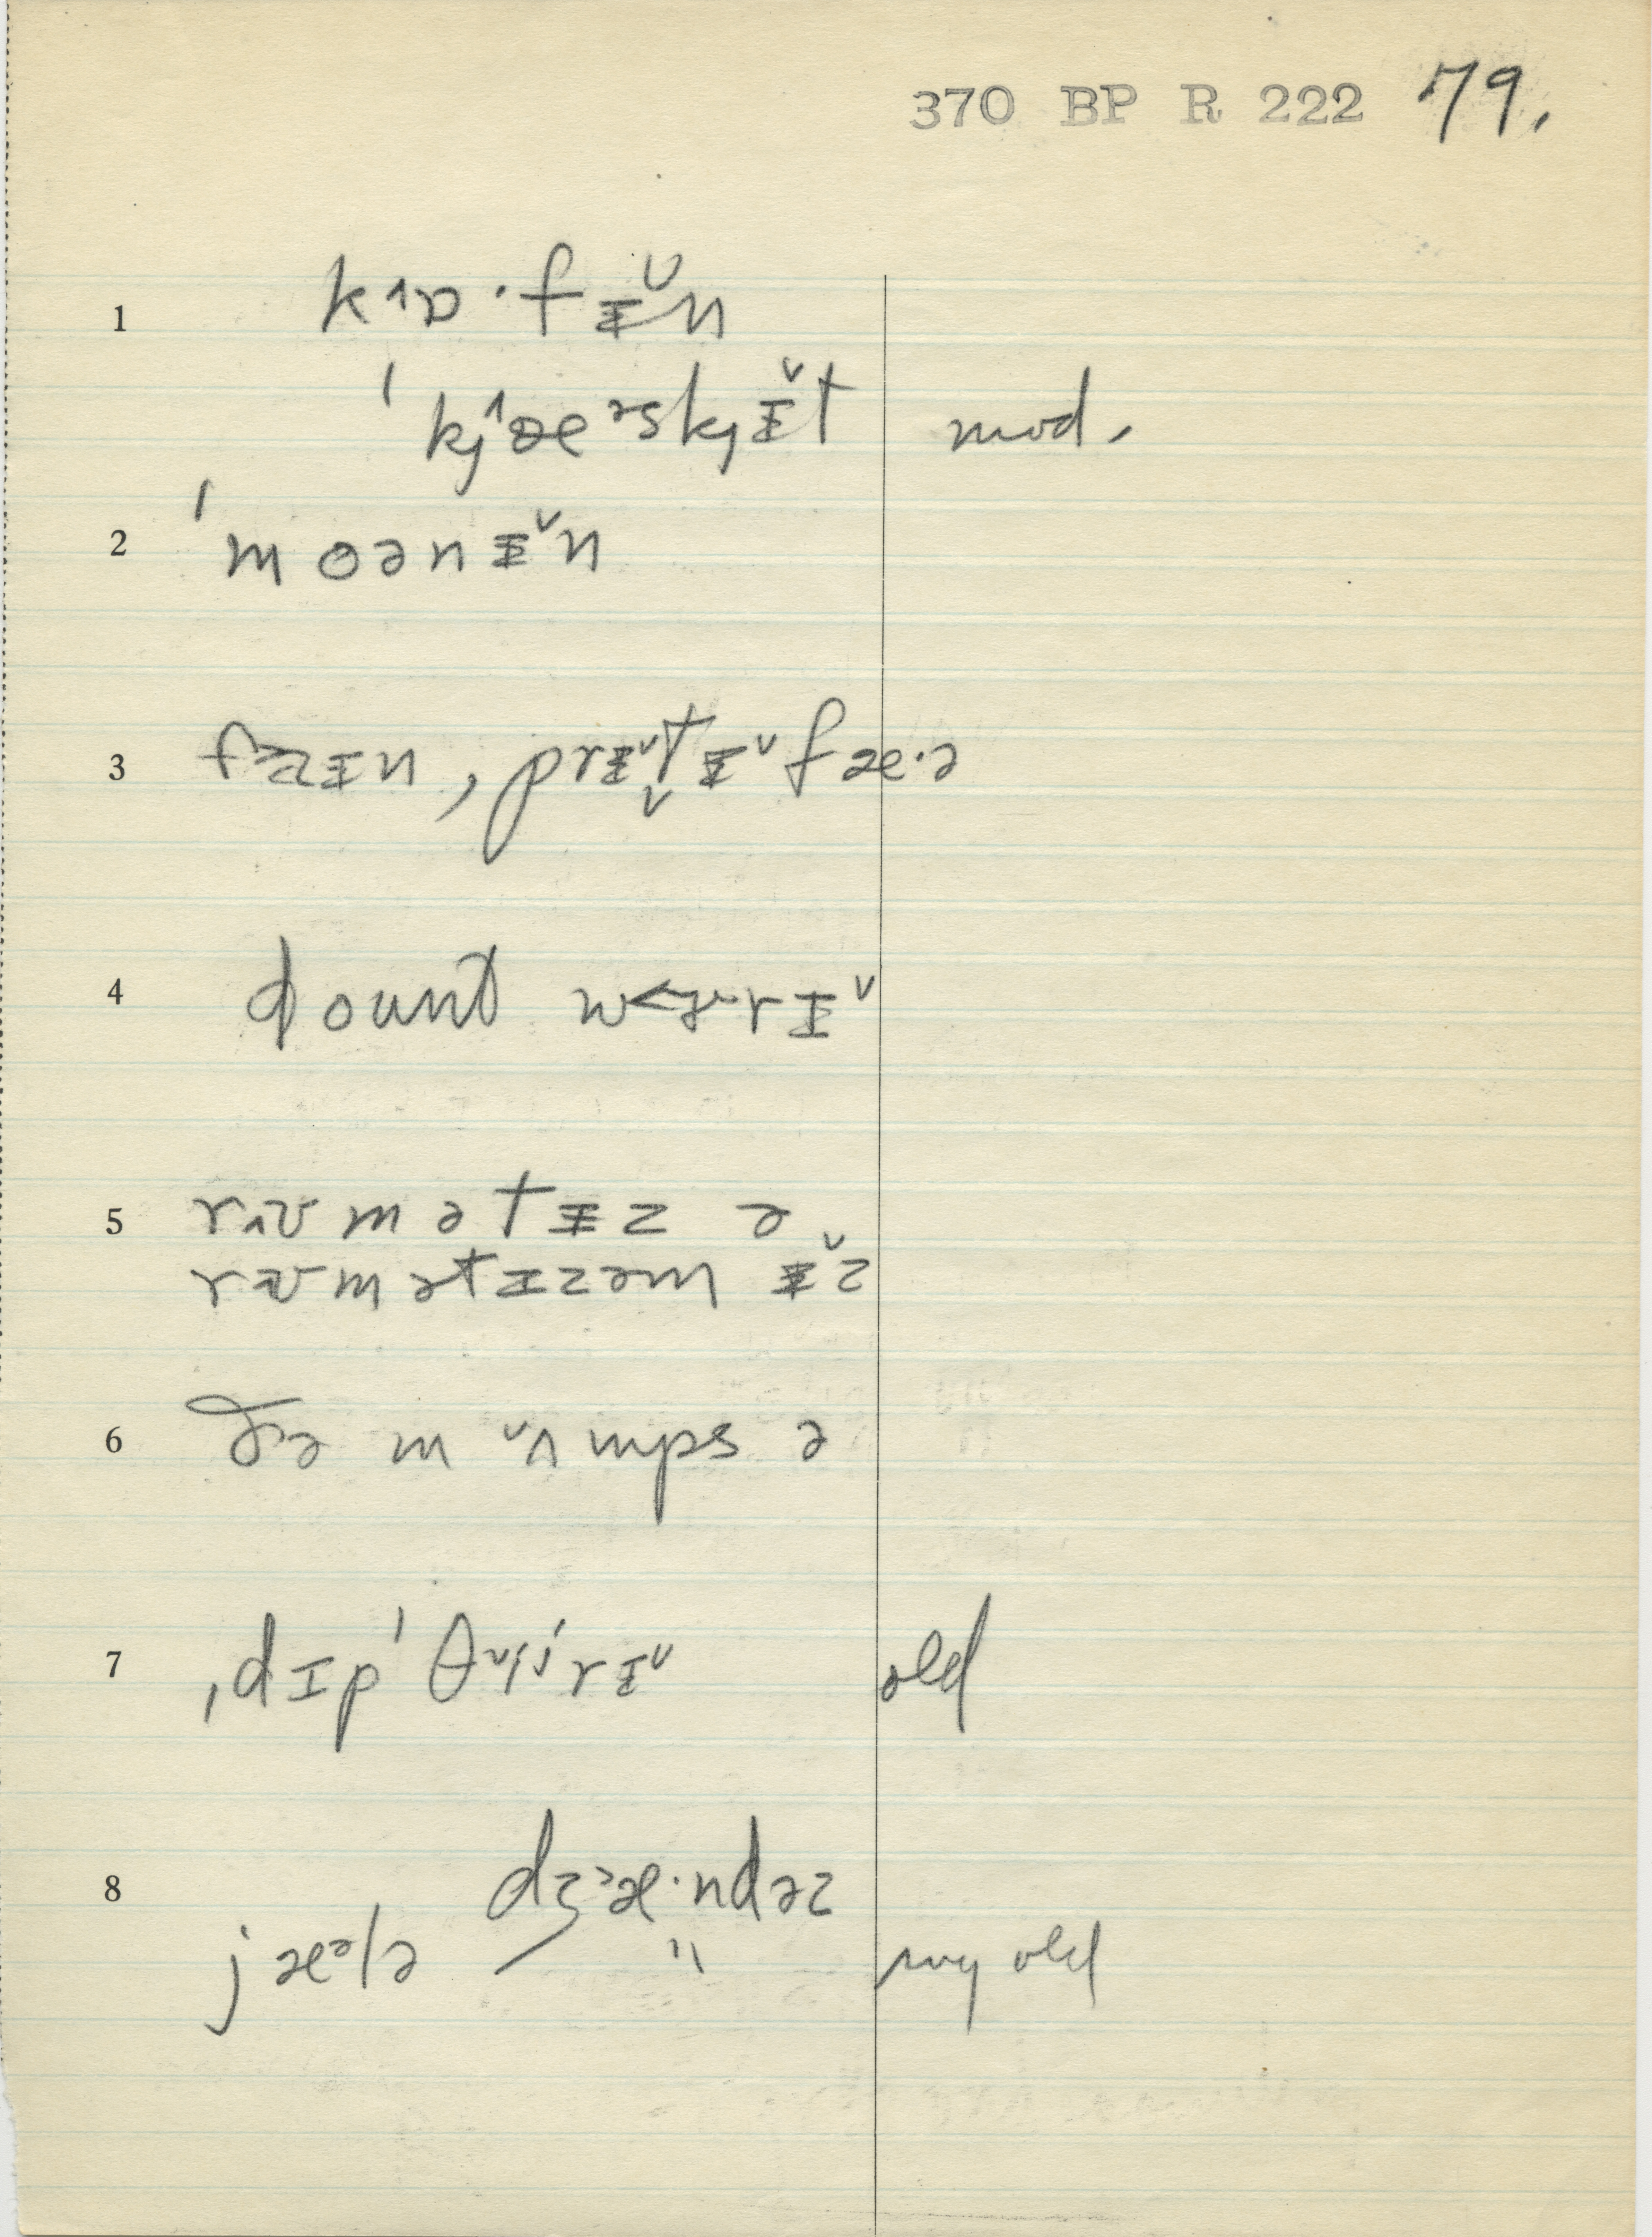 370 BP R 222 79.
1 kɒ˄·fɪ̵̆n
ˈkj˄æᵊskjɪ̵̆t mod.
2 ˈmoənɪ̵̆n
3 faɪn, prɪ̵̆t̬ɪ̵̆fæ·ə
4 doʊnt w<ɜrɪ̆
5 rʊ˄mətɪ̵z ə
rʊmətɪzəm ɪ̵̆z
6 ðə mʌ˅mps ə
7 ˌdɪpˈθi˅ɚrɪ̆ old
8 dʒæ˃·ndəz
jæᵊlə " my old